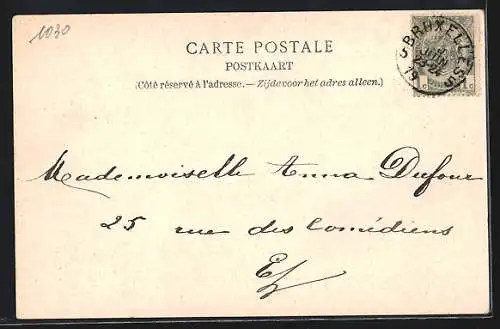 1030
CARTE POSTALE
POSTKAART
(Côté réservé à l'adresse. — Zijde voor het adres alleen.)
BRUXELLES
JUIN
Mademoiselle Anna Dufour
25 rue des Comédiens
E/V